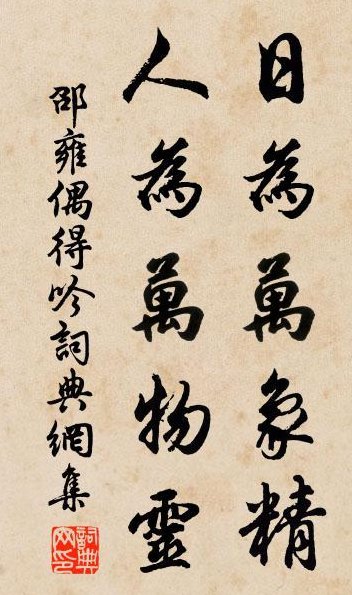 日為萬象精
人為萬物靈
邵雍偶得吟詞典網集
詞典網印